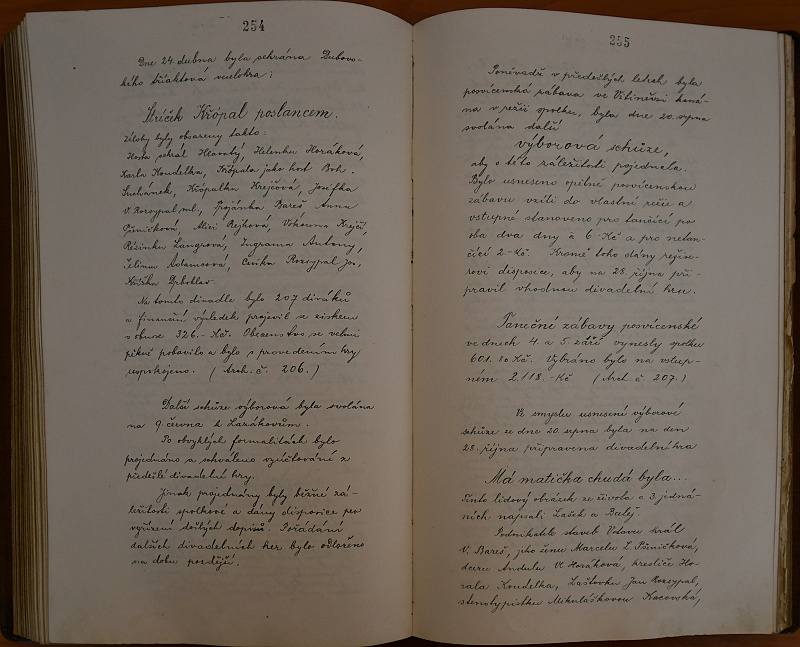 254
Dne 24. dubna byla sehrána Dubovo-
kého tříaktová veselohra:
Strýček Křópal poslancem.
Úlohy byly obsazeny takto:
Hosta sehrál Hlavatý, Helenku Horáková,
Karla Koudelka, Křópala jako host Boh.
Suchánek, Křópalku Krejčová, Josífka
V. Rozsypal ml., Bareš Anna
Pšeničková, Alici Rejhová, Krejčí,
Rézinku Langrová, Ingrama Antony,
Adamcová, Rozsypal Jos.,
Drbohlav.
Na tomto divadle bylo 207 diváků
a finanční výsledek projevil se ziskem
v obnose 326.- Kč. Obecenstvo se velmi
pěkně pobavilo a bylo s provedením hry
uspokojeno. (Arch. č. 206.)
Další schůze výborová byla svolána
na 9. června k Lazákovům.
Po obvyklých formalitách bylo
projednáno a schváleno vyúčtování z
předešlé divadelní hry.
Jinak projednány byly běžné zá-
ležitosti spolkové a dány disposice pro
vyřízení došlých dopisů. Pořádání
dalších divadelních her bylo odloženo
na dobu pozdější.
255
Poněvadž v předešlých letech byla
posvícenská zábava ve Vitiněvsi koná-
na v režii spolku, byla dne 20. srpna
svolána další
výborová schůze,
aby o této záležitosti pojednala.
Bylo usneseno opětně posvícenskou
zábavu vzíti do vlastní režie a
vstupné stanoveno pro tančící po
oba dva dny à 6-Kč a pro netan-
čící 2-Kč. Kromě toho dány režise-
rovi disposice, aby na 28. října při-
pravil vhodnou divadelní hru.
Taneční zábavy posvícenské
ve dnech 4. a 5. září vynesly spolku
601.80 Kč. Vybráno bylo na vstup-
ném 2.118.-Kč (Arch. č. 207.)
Ve smyslu usnesení výborové
schůze ze dne 20. srpna byla na den
28. října připravena divadelní hra
Má matička chudá byla...
Tento lidový obrázek ze života o 3. jedná-
ních napsali Lašek a Balěj.
Podnikatele staveb Votavu hrál
V. Bareš, jeho ženu Marcelu L. Pšeničková,
dceru Andulu Vl. Horáková, kresliče Ho-
Koudelka, Laštovku Jan Rozsypal,
stenotypistku Mikuláškovou Kacovská,